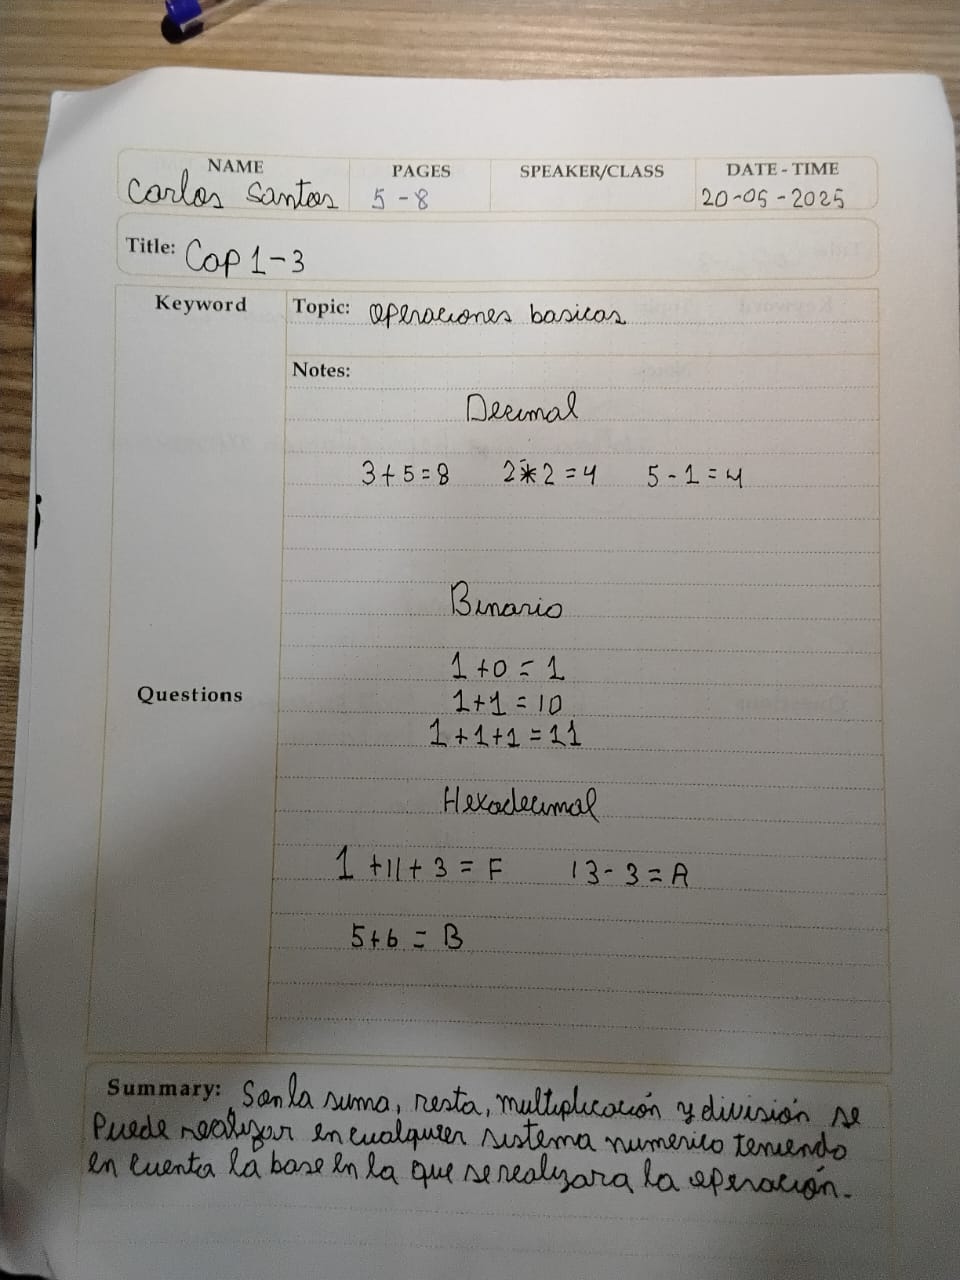 NAME PAGES SPEAKER/CLASS DATE - TIME
Carlos Santos 5 - 8 20-05-2025
Title: Cap 1-3
Keyword Topic: operaciones basicas
Notes:
Decimal
3+5=8 2*2=4 5-1=4
Binario
1+0=1
Questions
1+1=10
1+1+1=11
Hexadecimal
1+11+3=F 13-3=A
5+6=B
Summary: Son la suma, resta, multiplicación y división se
Puede realizar en cualquier sistema numerico teniendo
en cuenta la base en la que se realizara la operación.